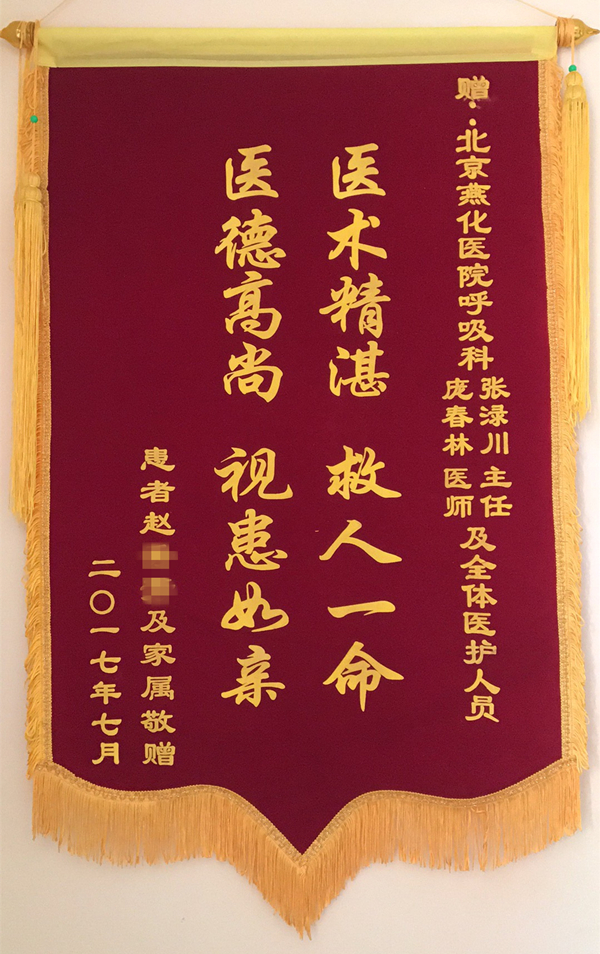 赠：北京燕化医院呼吸科
张渌川 主任
庞春林 医师
及全体医护人员
医术精湛 救人一命
医德高尚 视患如亲
患者赵及家属敬赠
二〇一七年七月